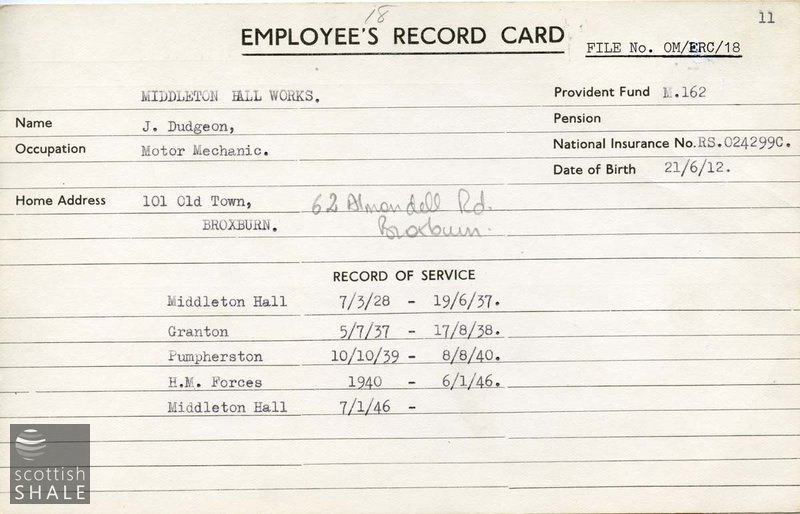 18
11
EMPLOYEE'S RECORD CARD
FILE No. OM/ERC/18
MIDDLETON HALL WORKS.
Provident Fund M.162
Name J. Dudgeon,
Pension
Occupation Motor Mechanic.
National Insurance No. RS.024299C.
Date of Birth 21/6/12.
Home Address 101 Old Town, 62 Almondell Rd.
BROXBURN. Broxburn.
RECORD OF SERVICE
Middleton Hall 7/3/28 - 19/6/37.
Granton 5/7/37 - 17/8/38.
Pumpherston 10/10/39 - 8/8/40.
H.M. Forces 1940 - 6/1/46.
Middleton Hall 7/1/46 -
scottish
SHALE